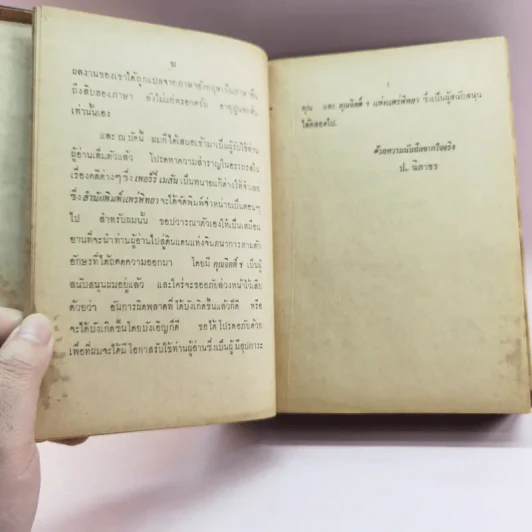 ข
ผลงานของเขาได้ถูกแปลจากภาษาอังกฤษเป็นภาษาอื่น
ถึงสิบสองภาษา ยังไม่แค่
เท่านั้นเอง
และ ณ บัดนี้ ผมก็ได้เสนอเข้ามาเป็นผู้รับใช้ท่าน
ผู้อ่านเต็มตัวแล้ว โปรดหาความสำราญในอรรถรสใน
เรื่องคดีต่างๆ ซึ่ง เพอร์รี่ เมสัน เป็นทนายแก้ต่างให้จำเลย
ซึ่ง สำนักพิมพ์แพร่พิทยา จะได้จัดพิมพ์จำหน่ายเป็นตอนๆ
ไป สำหรับผมนั้น ขอปวารณาตัวเองให้เป็นเสมือน
ยานที่จะนำท่านผู้อ่านไปสู่ดินแดนแห่งจินตนาการตามตัว
อักษรที่ได้ถอดความออกมา โดยมี คุณจิตต์ ฯ เป็นผู้
สนับสนุนผมอยู่แล้ว และใคร่จะขออภัยล่วงหน้าไว้เสีย
ด้วยว่า อันการผิดพลาดที่ได้บังเกิดขึ้นแล้วก็ดี หรือ
จะได้บังเกิดขึ้นโดยบังเอิญก็ดี ขอได้โปรดอภัยด้วย
เพื่อที่ผมจะได้มีโอกาสรับใช้ท่านผู้อ่านซึ่งเป็นผู้มีอุปการะ
คุณ และ คุณจิตต์ ฯ แห่งแพร่พิทยา ซึ่งเป็นผู้สนับสนุน
ได้ตลอดไป.
ด้วยความนับถือจากใจจริง
ป. นิภาธร